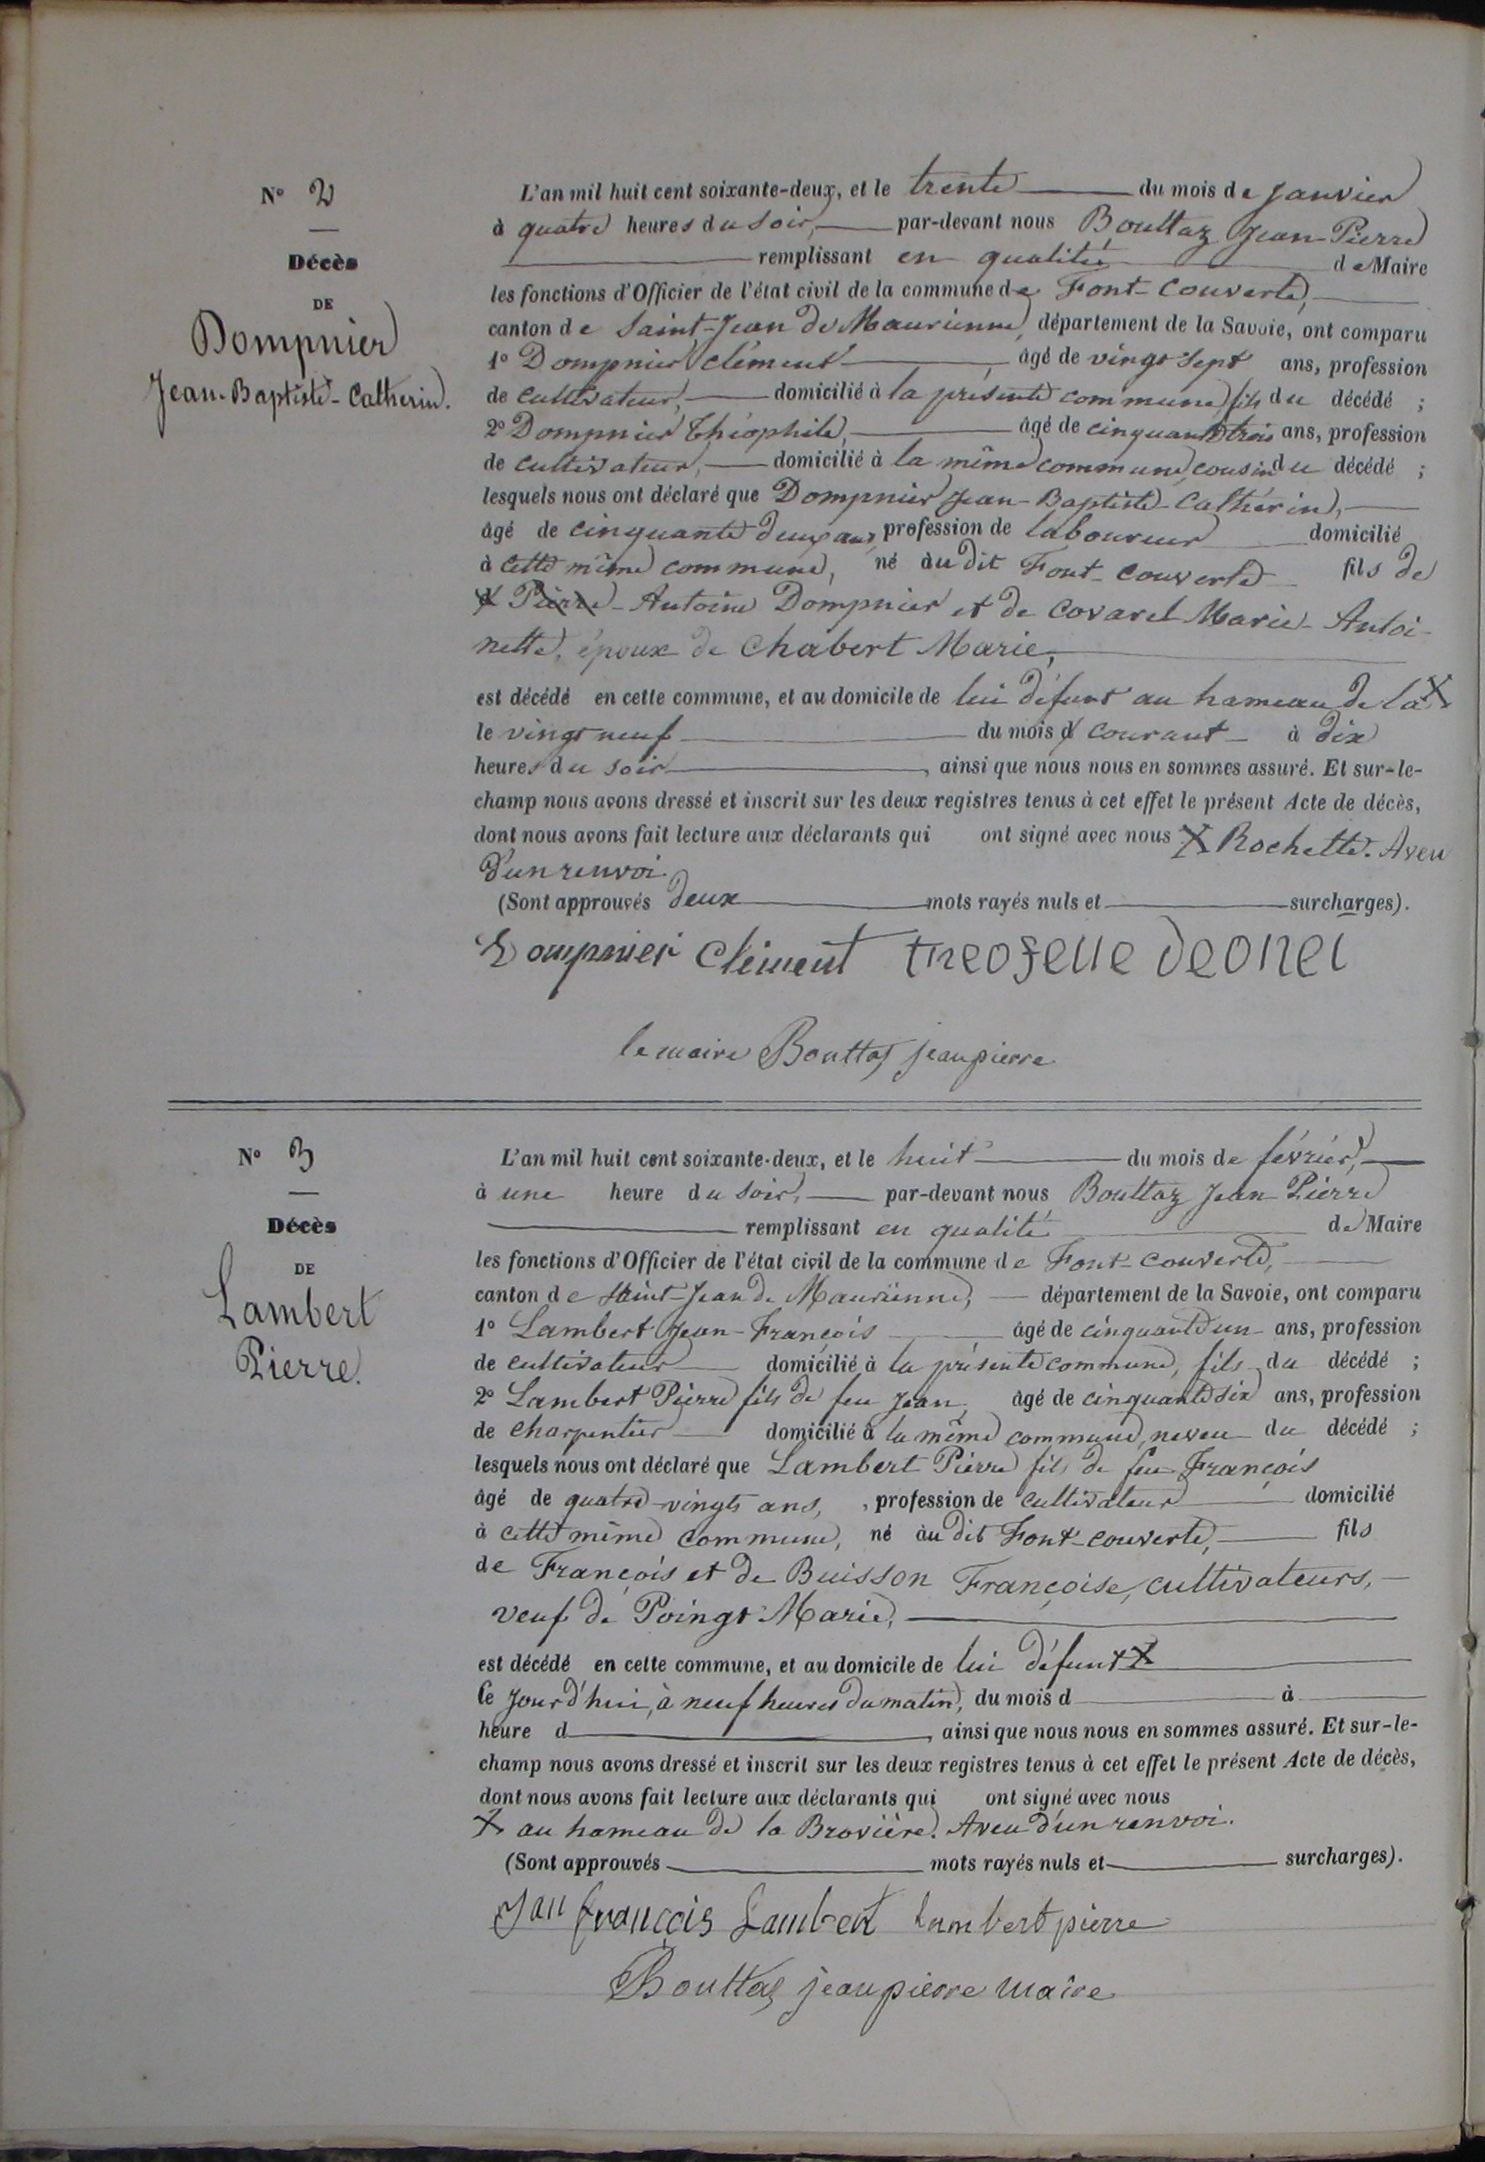 N° 2
Décès
DE
Dompnier
Jean-Baptiste-Catherin.
L'an mil huit cent soixante-deux, et le trente du mois de Janvier
à quatre heures du soir, par-devant nous Bouttaz Jean-Pierre
remplissant en qualité de Maire
les fonctions d'Officier de l'état civil de la commune de Font-Couverte,
canton de Saint-Jean de Maurienne, département de la Savoie, ont comparu
1° Dompnier Clément, âgé de vingt sept ans, profession
de cultivateur, domicilié à la présente commune, fils du décédé ;
2° Dompnier Théophile, âgé de cinquante trois ans, profession
de cultivateur, domicilié à la même commune, cousin du décédé ;
lesquels nous ont déclaré que Dompnier Jean-Baptiste-Cathérin,
âgé de cinquante deux ans, profession de laboureur domicilié
à cette même commune, né au dit Font-couverte fils de
Pierre-Antoine Dompnier et de Covarel Marie-Antoi-
nette, époux de Chabert Marie,
est décédé en cette commune, et au domicile de lui défunt au hameau de la X
le vingt neuf du mois d courant à dix
heures du soir, ainsi que nous nous en sommes assuré. Et sur-le-
champ nous avons dressé et inscrit sur les deux registres tenus à cet effet le présent Acte de décès,
dont nous avons fait lecture aux déclarants qui ont signé avec nous X Rochette. Aveu
d'un renvoi.
(Sont approuvés deux mots rayés nuls et surcharges).
Dompnier Clément
le maire Bouttaz jean pierre
N° 3
Décès
DE
Lambert
Pierre.
L'an mil huit cent soixante-deux, et le huit du mois de février,
à une heure du soir, par-devant nous Bouttaz Jean-Pierre
remplissant en qualité de Maire
les fonctions d'Officier de l'état civil de la commune de Font-couverte,
canton de Saint-Jean de Maurienne, département de la Savoie, ont comparu
1° Lambert Jean-François âgé de cinquante un ans, profession
de cultivateur domicilié à la présente commune, fils du décédé ;
2° Lambert Pierre fils de feu Jean, âgé de cinquante six ans, profession
de charpentier domicilié à la même commune, neveu du décédé ;
lesquels nous ont déclaré que Lambert Pierre fils de feu François
âgé de quatre-vingts ans, profession de cultivateur domicilié
à cette même commune, né au dit Font-couverte, fils
de François et de Buisson Françoise, cultivateurs,
veuf de Poingt Marie,
est décédé en cette commune, et au domicile de lui défunt X
Ce Jourd'hui, à neuf heures du matin, du mois d à
heure d, ainsi que nous nous en sommes assuré. Et sur-le-
champ nous avons dressé et inscrit sur les deux registres tenus à cet effet le présent Acte de décès,
dont nous avons fait lecture aux déclarants qui ont signé avec nous
X au hameau de la Brovière. Aveu d'un renvoi.
(Sont approuvés mots rayés nuls et surcharges).
Jan françois Lambert lambert pierre
Bouttaz jean pierre maire